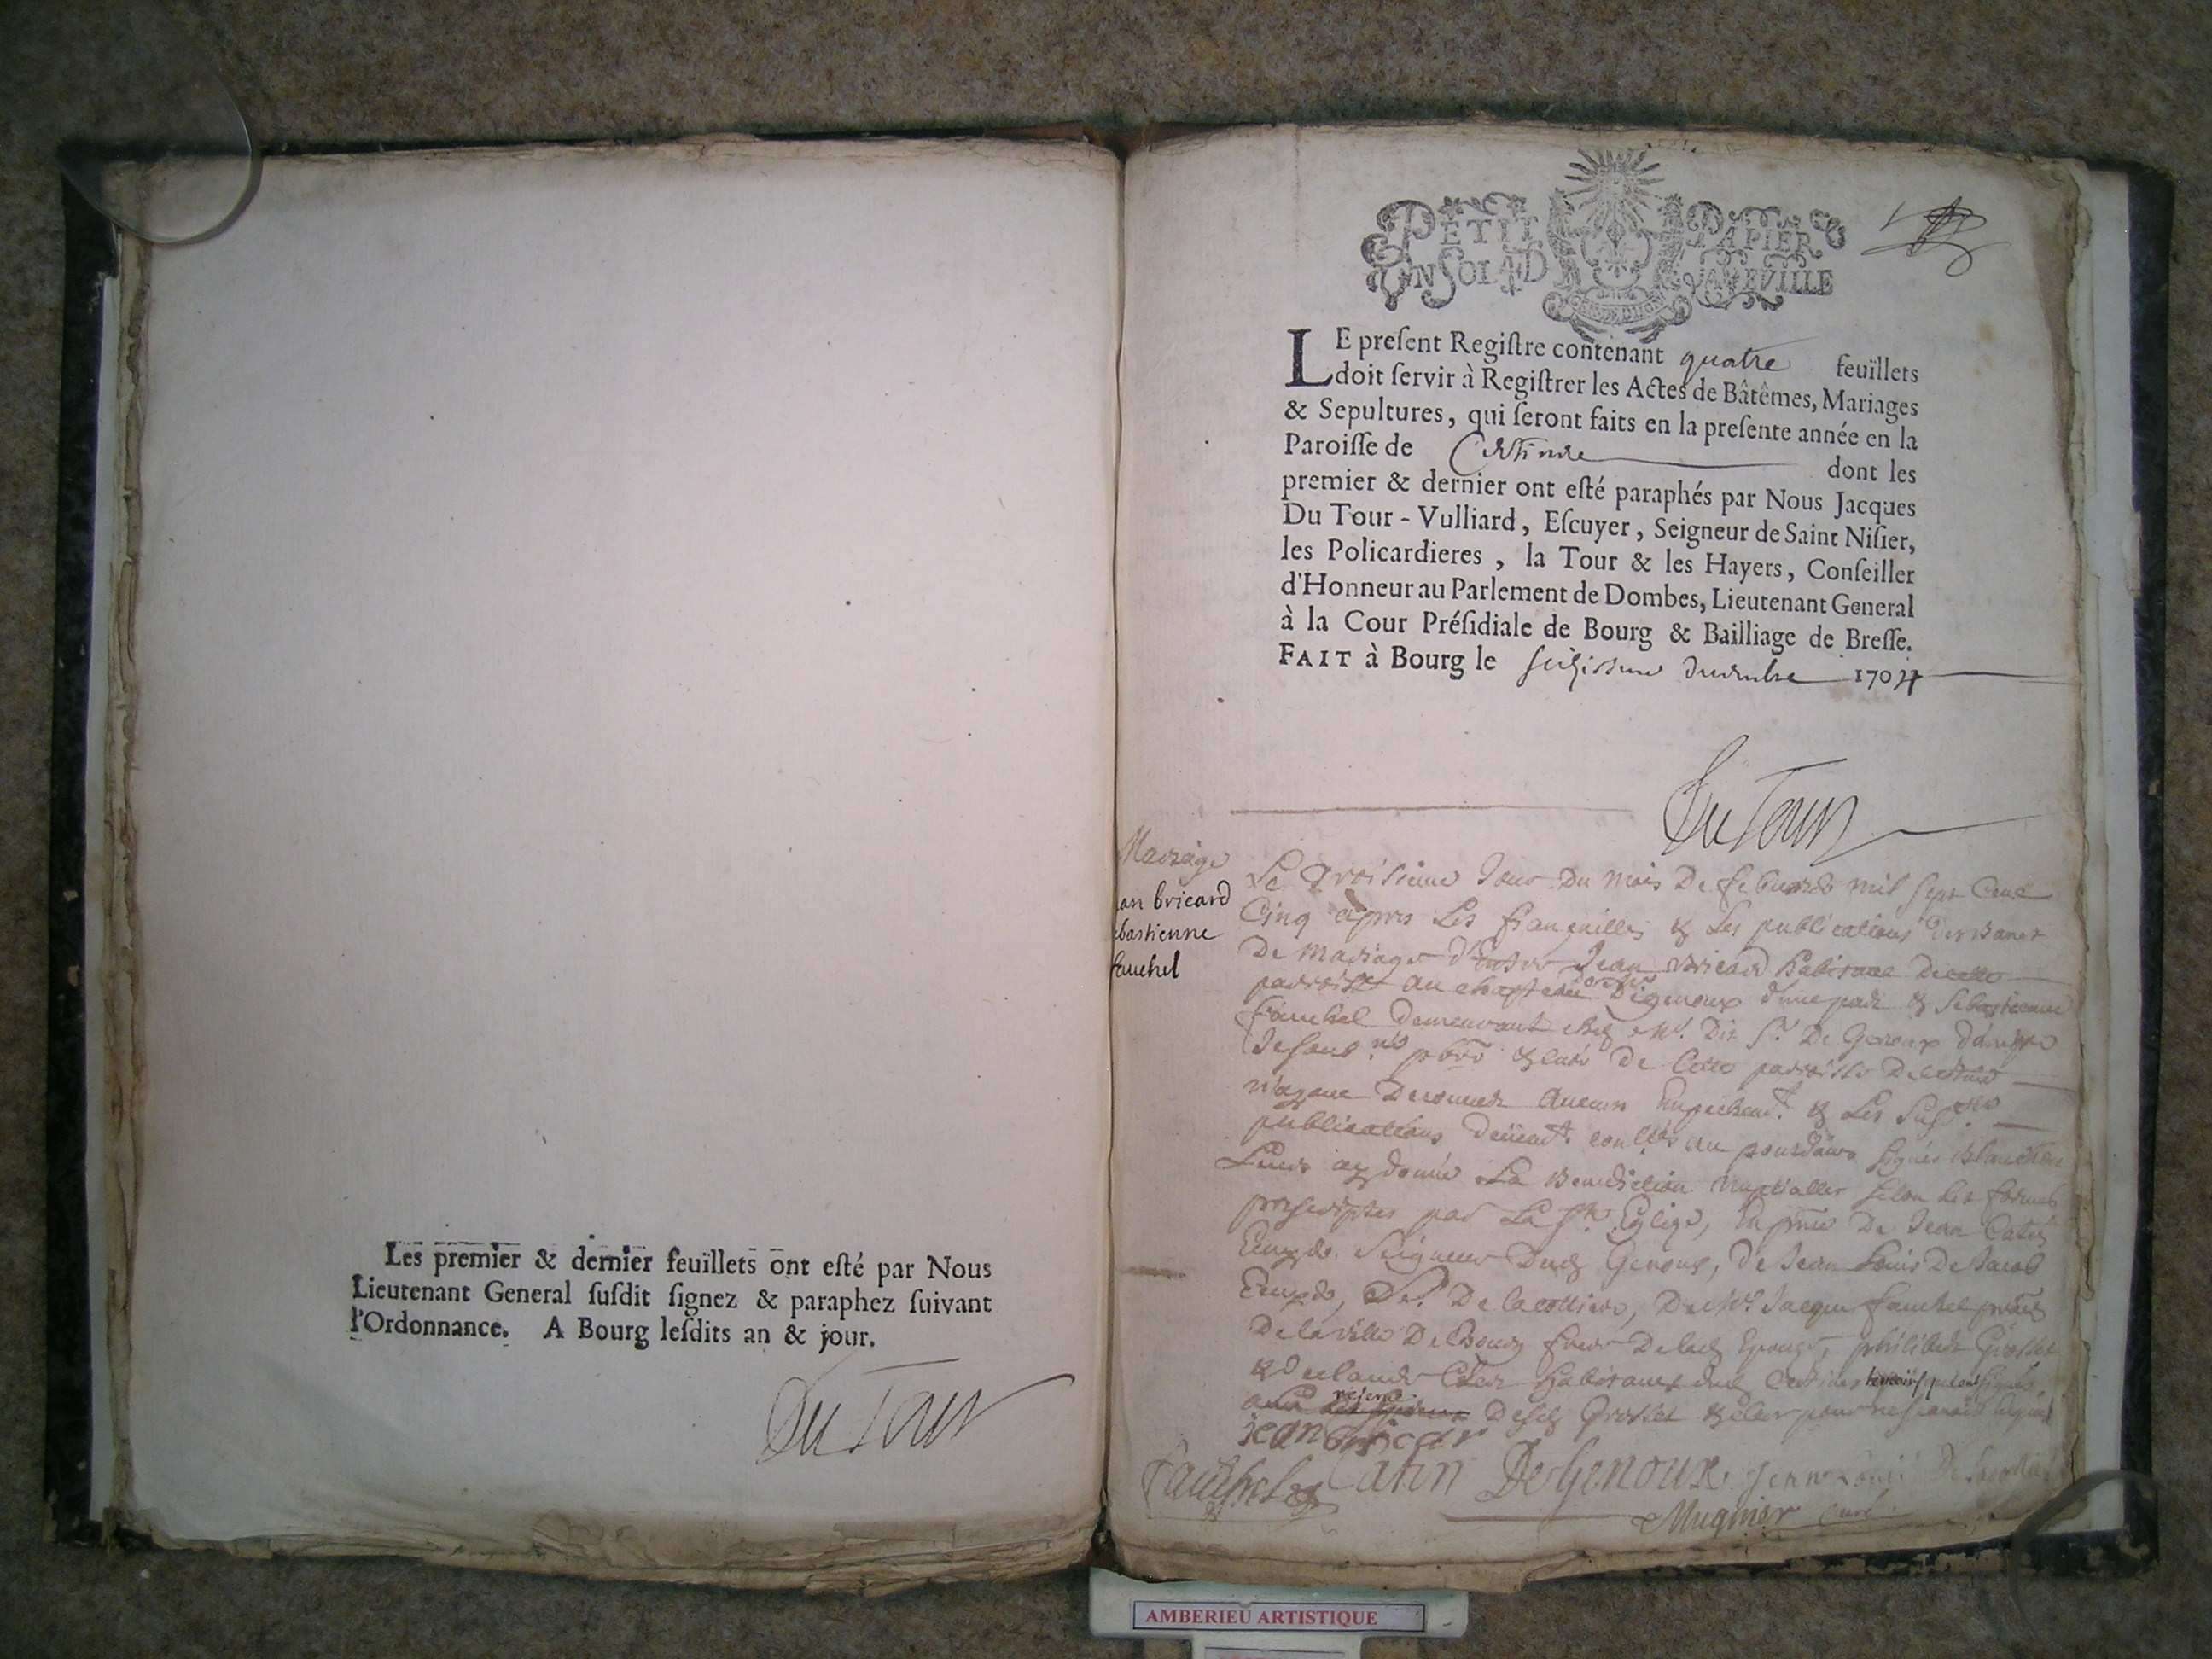 Les premier & dernier feuillets ont esté par Nous
Lieutenant General susdit signez & paraphez suivant
l'Ordonnance. A Bourg lesdits an & jour.
Du Tour
PETIT PAPIER
UN SOL 4 D LA FEUILLE
LE present Registre contenant quatre feüillets
doit servir à Registrer les Actes de Bâtêmes, Mariages
& Sepultures, qui seront faits en la presente année en la
Paroisse de dont les
premier & dernier ont esté paraphés par Nous Jacques
Du Tour - Vulliard, Escuyer, Seigneur de Saint Nisier,
les Policardieres, la Tour & les Hayers, Conseiller
d'Honneur au Parlement de Dombes, Lieutenant General
à la Cour Présidiale de Bourg & Bailliage de Bresse.
FAIT à Bourg le 1704
Du Tour
Mariage
an bricard
ebastienne
fauchel
Le troisieme Jour Du mois De febvrier mil sept Cent
Cinq apres Les fiancailles & Les publications Des bancs
De Mariage d'Entre Jean Bricard habitant De cette
parroisse au De Genoux d'une part & Sebastienne
fauchel Demeurant chez Mr. De Genoux d'autre
Je soubs.né pbre & curé De Cette parroisse
n'ayant Decouvert Aucun Empechemt. & Les
publications controllé au
Leurs ay donné La Benediction Nuptialle selon Les formes
prescriptes par La Ste. Eglise, En pnce De Jean Catin
Seigneur Dud Genoux, De Jean Louis De Jacob
Sr. De la cottiere, De Mr. Jacque fauchel
De la ville De Bourg frere De lad Epouse, philibert Grosset
& Claude habitants dud
Desd Grosset &
jean bricar
fauchel Catin De Genoux Jean Louis De
Mugnier curé
AMBERIEU ARTISTIQUE